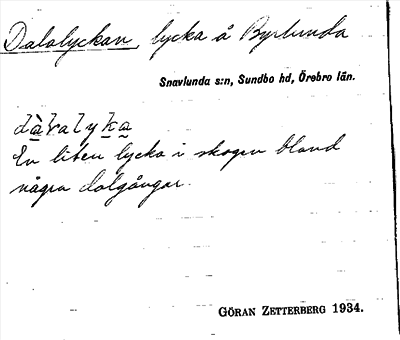 Dalalyckan, lycka å Byrlunda
Snavlunda s:n, Sundbo hd, Örebro län.
dàralyka
En liten lycka i skogen bland
några dalgångar.
GÖRAN ZETTERBERG 1934.